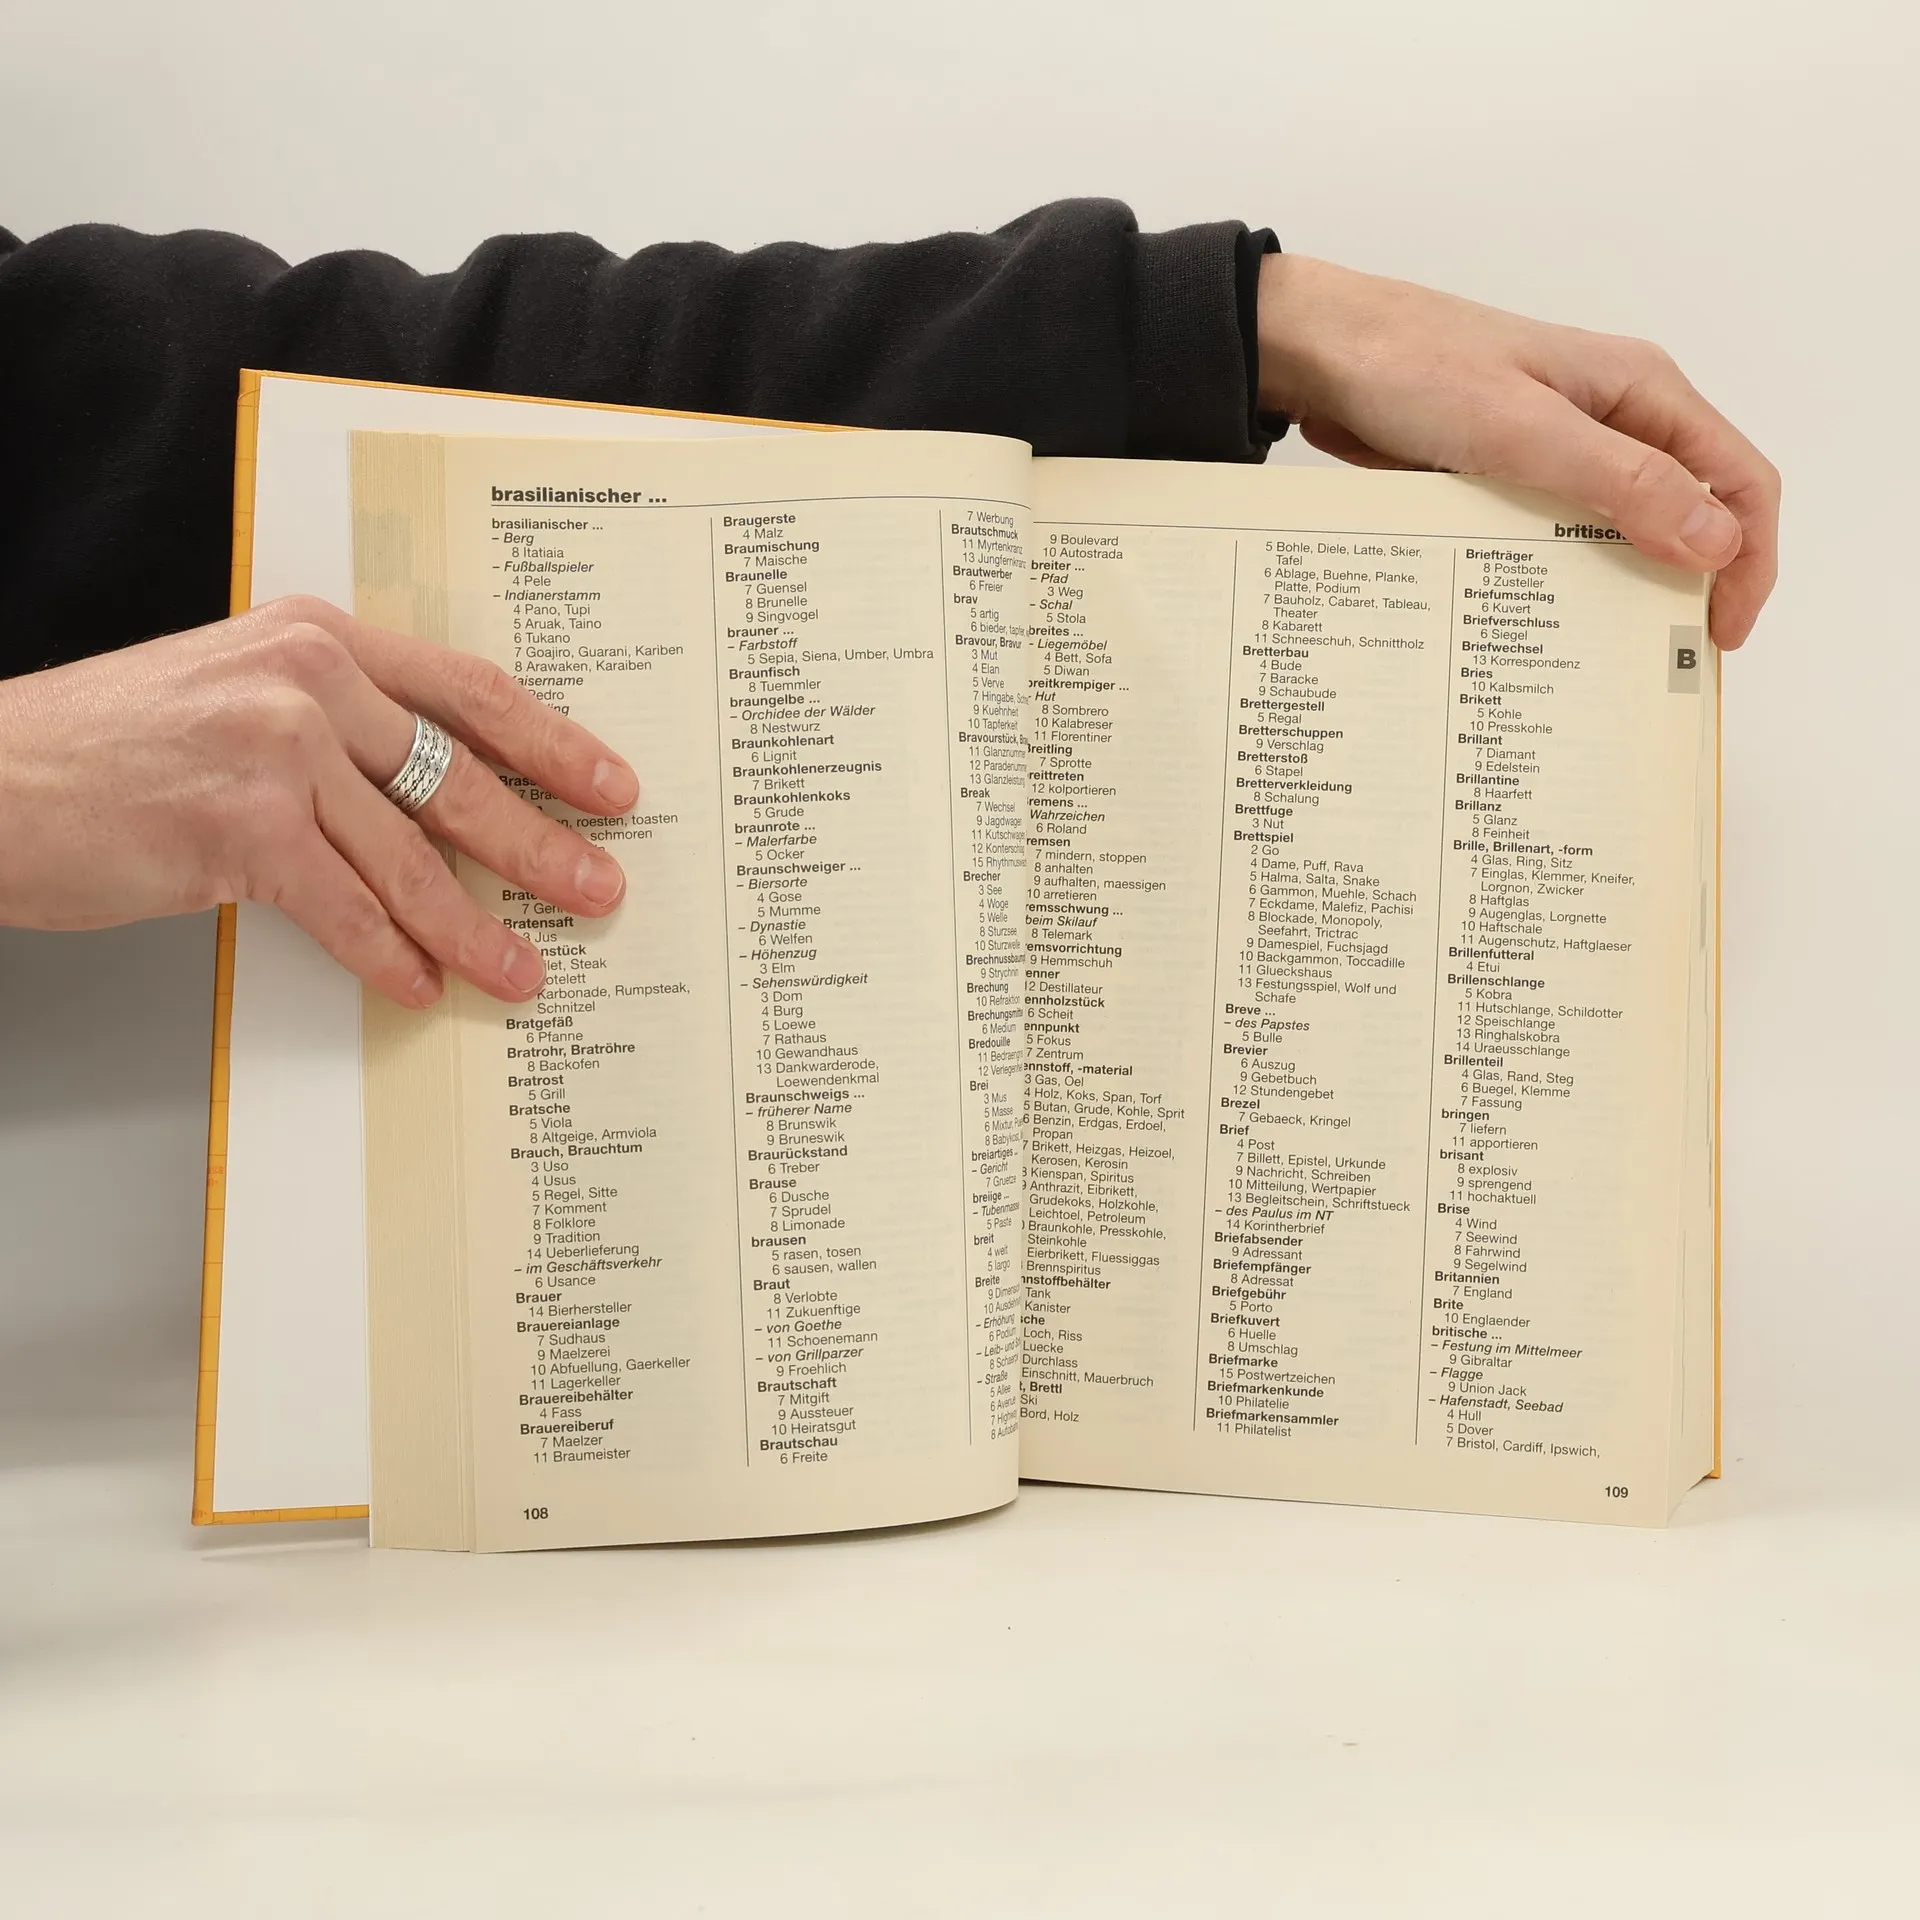 brasilianischer ...
brasilianischer ...
– Berg
8 Itatiaia
– Fußballspieler
4 Pele
– Indianerstamm
4 Pano, Tupi
5 Aruak, Taino
6 Tukano
7 Goajiro, Guarani, Kariben
8 Arawaken, Karaiben
Kaisername
Pedro
roesten, toasten
schmoren
Bratensaft
3 Jus
Steak
Karbonade, Rumpsteak,
Schnitzel
Bratgefäß
6 Pfanne
Bratrohr, Bratröhre
8 Backofen
Bratrost
5 Grill
Bratsche
5 Viola
8 Altgeige, Armviola
Brauch, Brauchtum
3 Uso
4 Usus
5 Regel, Sitte
7 Komment
8 Folklore
9 Tradition
14 Ueberlieferung
– im Geschäftsverkehr
6 Usance
Brauer
14 Bierhersteller
Brauereianlage
7 Sudhaus
9 Maelzerei
10 Abfuellung, Gaerkeller
11 Lagerkeller
Brauereibehälter
4 Fass
Brauereiberuf
7 Maelzer
11 Braumeister
108
Braugerste
4 Malz
Braumischung
7 Maische
Braunelle
7 Guensel
8 Brunelle
9 Singvogel
brauner ...
– Farbstoff
5 Sepia, Siena, Umber, Umbra
Braunfisch
8 Tuemmler
braungelbe ...
– Orchidee der Wälder
8 Nestwurz
Braunkohlenart
6 Lignit
Braunkohlenerzeugnis
7 Brikett
Braunkohlenkoks
5 Grude
braunrote ...
– Malerfarbe
5 Ocker
Braunschweiger ...
– Biersorte
4 Gose
5 Mumme
– Dynastie
6 Welfen
– Höhenzug
3 Elm
– Sehenswürdigkeit
3 Dom
4 Burg
5 Loewe
7 Rathaus
10 Gewandhaus
13 Dankwarderode,
Loewendenkmal
Braunschweigs ...
– früherer Name
8 Brunswik
9 Bruneswik
Braurückstand
6 Treber
Brause
6 Dusche
7 Sprudel
8 Limonade
brausen
5 rasen, tosen
6 sausen, wallen
Braut
8 Verlobte
11 Zukuenftige
– von Goethe
11 Schoenemann
– von Grillparzer
9 Froehlich
Brautschaft
7 Mitgift
9 Aussteuer
10 Heiratsgut
Brautschau
6 Freite
7 Werbung
Brautschmuck
11 Myrtenkranz
13 Jungfernkranz
Brautwerber
6 Freier
brav
5 artig
6 bieder, tapfer
Bravour, Bravur
3 Mut
4 Elan
5 Verve
7 Hingabe,
9 Kuehnheit
10 Tapferkeit
Bravourstück,
11 Glanznummer
12 Paradenummer
13 Glanzleistung
Break
7 Wechsel
9 Jagdwagen
11 Kutschwagen
12 Konterschlag
15
Brecher
3 See
4 Woge
5 Welle
8 Sturzsee
10 Sturzwelle
Brechnussbaum
9 Strychnin
Brechung
10 Refraktion
6 Medium
Bredouille
11
12
Brei
3 Mus
5 Masse
6 Mixtur,
8
breiartiges ...
– Gericht
7 Gruetze
breiige ...
– Tubenmasse
5 Paste
breit
4 weit
5 largo
Breite
9 Dimension
10
– Erhöhung
6 Podium
8
– Straße
5 Allee
6 Avenue
7 Highway
8
britisch
9 Boulevard
10 Autostrada
breiter ...
– Pfad
3 Weg
– Schal
5 Stola
breites ...
– Liegemöbel
4 Bett, Sofa
5 Diwan
breitkrempiger ...
– Hut
8 Sombrero
10 Kalabreser
11 Florentiner
Breitling
7 Sprotte
breittreten
12 kolportieren
Bremens ...
Wahrzeichen
6 Roland
bremsen
7 mindern, stoppen
8 anhalten
9 aufhalten, maessigen
10 arretieren
Bremsschwung ...
beim Skilauf
8 Telemark
Bremsvorrichtung
9 Hemmschuh
Brenner
12 Destillateur
Brennholzstück
6 Scheit
Brennpunkt
5 Fokus
7 Zentrum
Brennstoff, -material
3 Gas, Oel
4 Holz, Koks, Span, Torf
5 Butan, Grude, Kohle, Sprit
6 Benzin, Erdgas, Erdoel,
Propan
7 Brikett, Heizgas, Heizoel,
Kerosen, Kerosin
8 Kienspan, Spiritus
9 Anthrazit, Eibrikett,
Grudekoks, Holzkohle,
Leichtoel, Petroleum
Braunkohle, Presskohle,
Steinkohle
Eierbrikett, Fluessiggas
Brennspiritus
Brennstoffbehälter
Tank
Kanister
Loch, Riss
Luecke
Durchlass
Einschnitt, Mauerbruch
Brettl
Ski
Bord, Holz
5 Bohle, Diele, Latte, Skier,
Tafel
6 Ablage, Buehne, Planke,
Platte, Podium
7 Bauholz, Cabaret, Tableau,
Theater
8 Kabarett
11 Schneeschuh, Schnittholz
Bretterbau
4 Bude
7 Baracke
9 Schaubude
Brettergestell
5 Regal
Bretterschuppen
9 Verschlag
Bretterstoß
6 Stapel
Bretterverkleidung
8 Schalung
Brettfuge
3 Nut
Brettspiel
2 Go
4 Dame, Puff, Rava
5 Halma, Salta, Snake
6 Gammon, Muehle, Schach
7 Eckdame, Malefiz, Pachisi
8 Blockade, Monopoly,
Seefahrt, Trictrac
9 Damespiel, Fuchsjagd
10 Backgammon, Toccadille
11 Glueckshaus
13 Festungsspiel, Wolf und
Schafe
Breve ...
– des Papstes
5 Bulle
Brevier
6 Auszug
9 Gebetbuch
12 Stundengebet
Brezel
7 Gebaeck, Kringel
Brief
4 Post
7 Billett, Epistel, Urkunde
9 Nachricht, Schreiben
10 Mitteilung, Wertpapier
13 Begleitschein, Schriftstueck
– des Paulus im NT
14 Korintherbrief
Briefabsender
9 Adressant
Briefempfänger
8 Adressat
Briefgebühr
5 Porto
Briefkuvert
6 Huelle
8 Umschlag
Briefmarke
15 Postwertzeichen
Briefmarkenkunde
10 Philatelie
Briefmarkensammler
11 Philatelist
Briefträger
8 Postbote
9 Zusteller
Briefumschlag
6 Kuvert
Briefverschluss
6 Siegel
Briefwechsel
13 Korrespondenz
Bries
10 Kalbsmilch
Brikett
5 Kohle
10 Presskohle
Brillant
7 Diamant
9 Edelstein
Brillantine
8 Haarfett
Brillanz
5 Glanz
8 Feinheit
Brille, Brillenart, -form
4 Glas, Ring, Sitz
7 Einglas, Klemmer, Kneifer,
Lorgnon, Zwicker
8 Haftglas
9 Augenglas, Lorgnette
10 Haftschale
11 Augenschutz, Haftglaeser
Brillenfutteral
4 Etui
Brillenschlange
5 Kobra
11 Hutschlange, Schildotter
12 Speischlange
13 Ringhalskobra
14 Uraeusschlange
Brillenteil
4 Glas, Rand, Steg
6 Buegel, Klemme
7 Fassung
bringen
7 liefern
11 apportieren
brisant
8 explosiv
9 sprengend
11 hochaktuell
Brise
4 Wind
7 Seewind
8 Fahrwind
9 Segelwind
Britannien
7 England
Brite
10 Englaender
britische ...
– Festung im Mittelmeer
9 Gibraltar
– Flagge
9 Union Jack
– Hafenstadt, Seebad
4 Hull
5 Dover
7 Bristol, Cardiff, Ipswich,
B
109